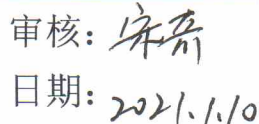 审核：宋奇
日期：2021.1.10